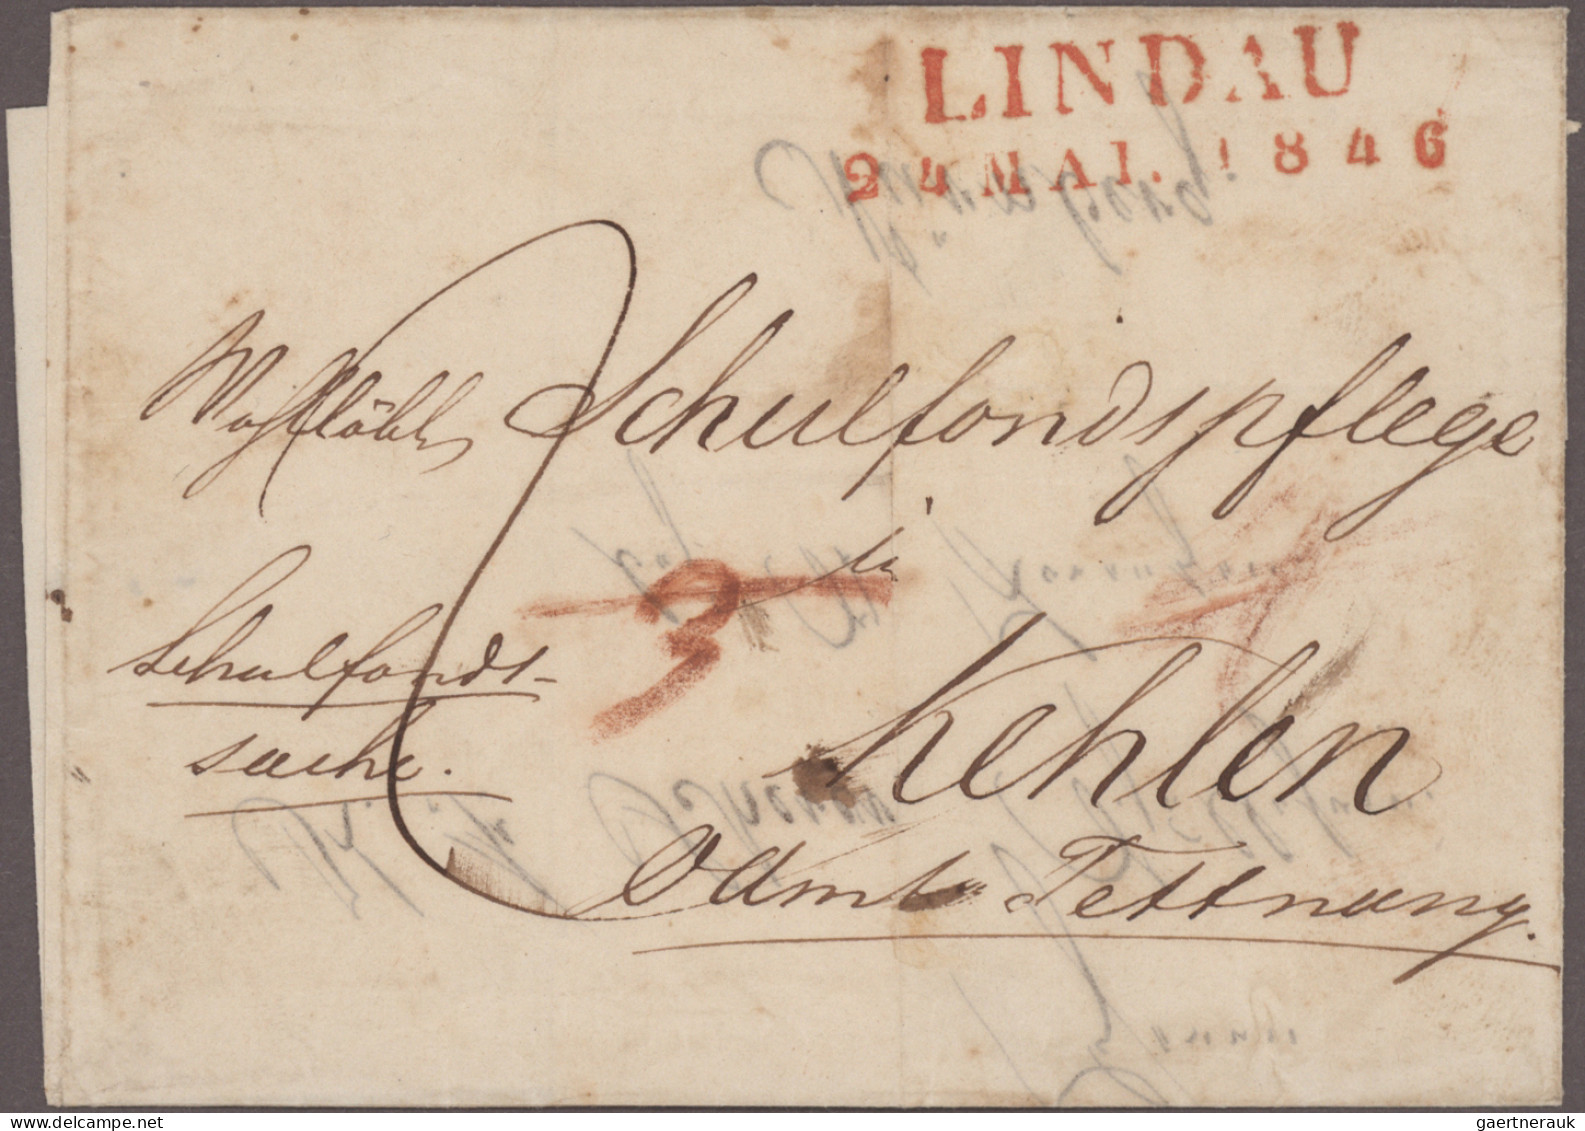 LINDAU
24 MAI. 1846
Wohllöbl. Schulfondspflege
in
3
Schulfonds-
sache.
Kehlen
OAmts Tettnang.
gaertnerauk